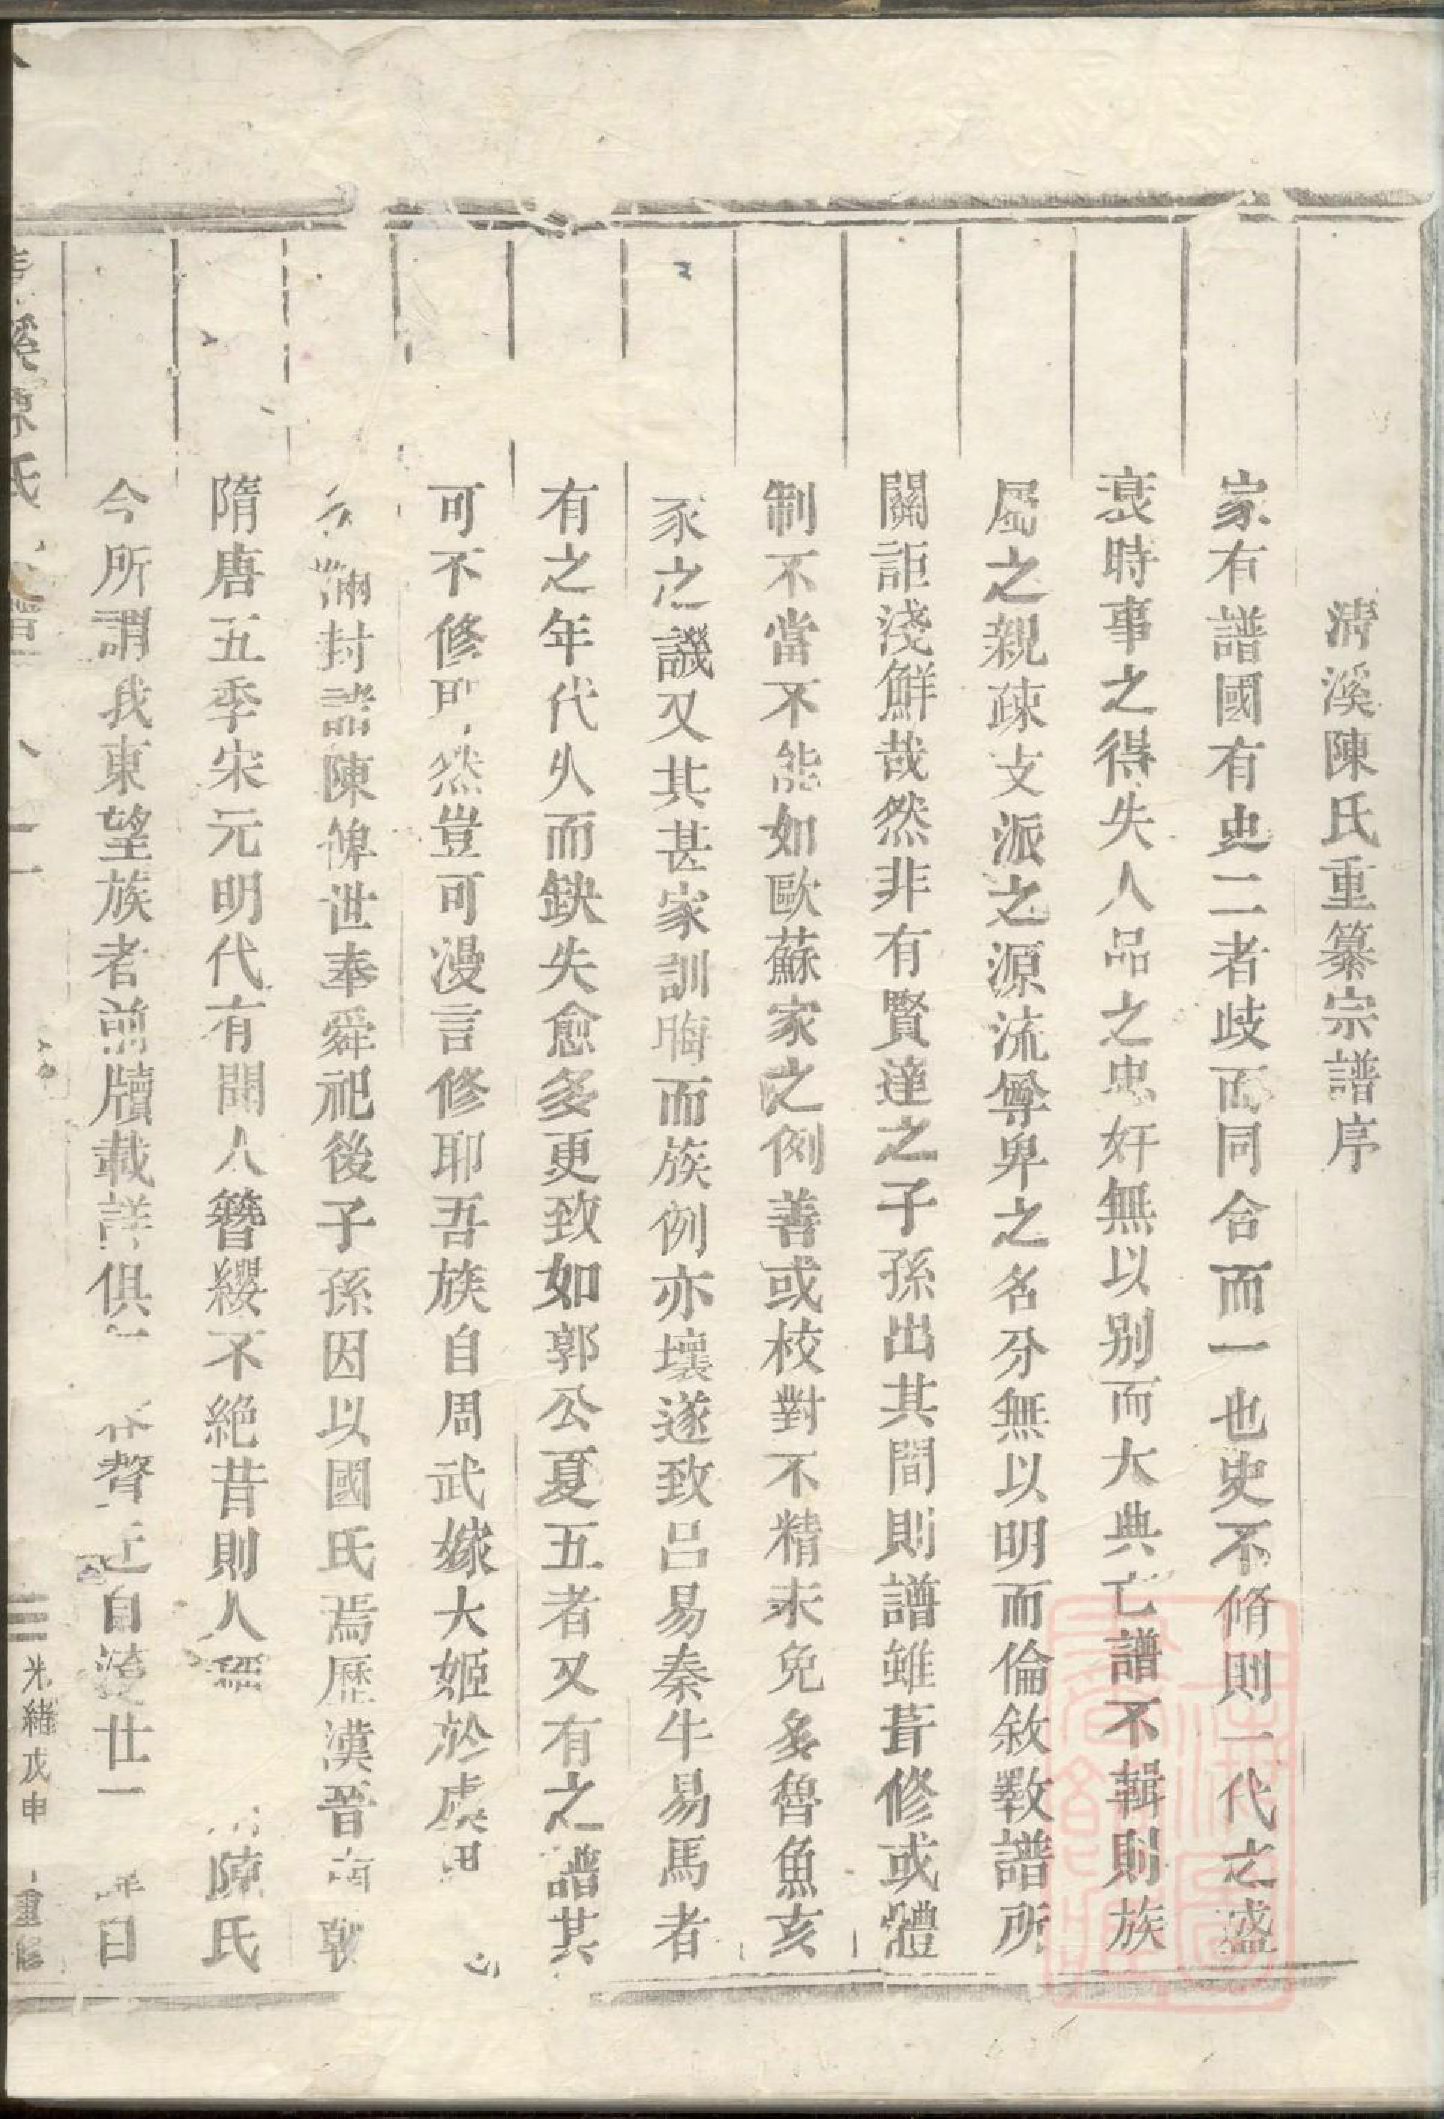 清溪陳氏重纂宗譜序
家有譜國有史二者歧而同合而一也史不脩則一代之盛
衰時事之得失人品之忠奸無以别而大典亡譜不輯則族
屬之親疎支派之源流尊卑之名分無以明而倫敘斁譜所
關詎淺鮮哉然非有賢達之子孫出其間則譜雖葺修或體
制不當不能如歐蘇家之例善或校對不精未免多魯魚亥
豕之譏又其甚家訓晦而族例亦壞遂致呂易秦牛易馬者
有之年代乆而缺失愈多更致如郭公夏五者又有之譜其
可不修耶然豈可漫言修耶吾族自周武嫁大姬於虞
滿封諸陳俾世奉舜祀後子孫因以國氏焉歷漢晉南朝
隋唐五季宋元明代有聞人簪纓不絶昔則人 陳氏
今所謂我東望族者前牘載詳俱 聲 自 仕 日
溪陳氏 譜
光緒戊申 重修